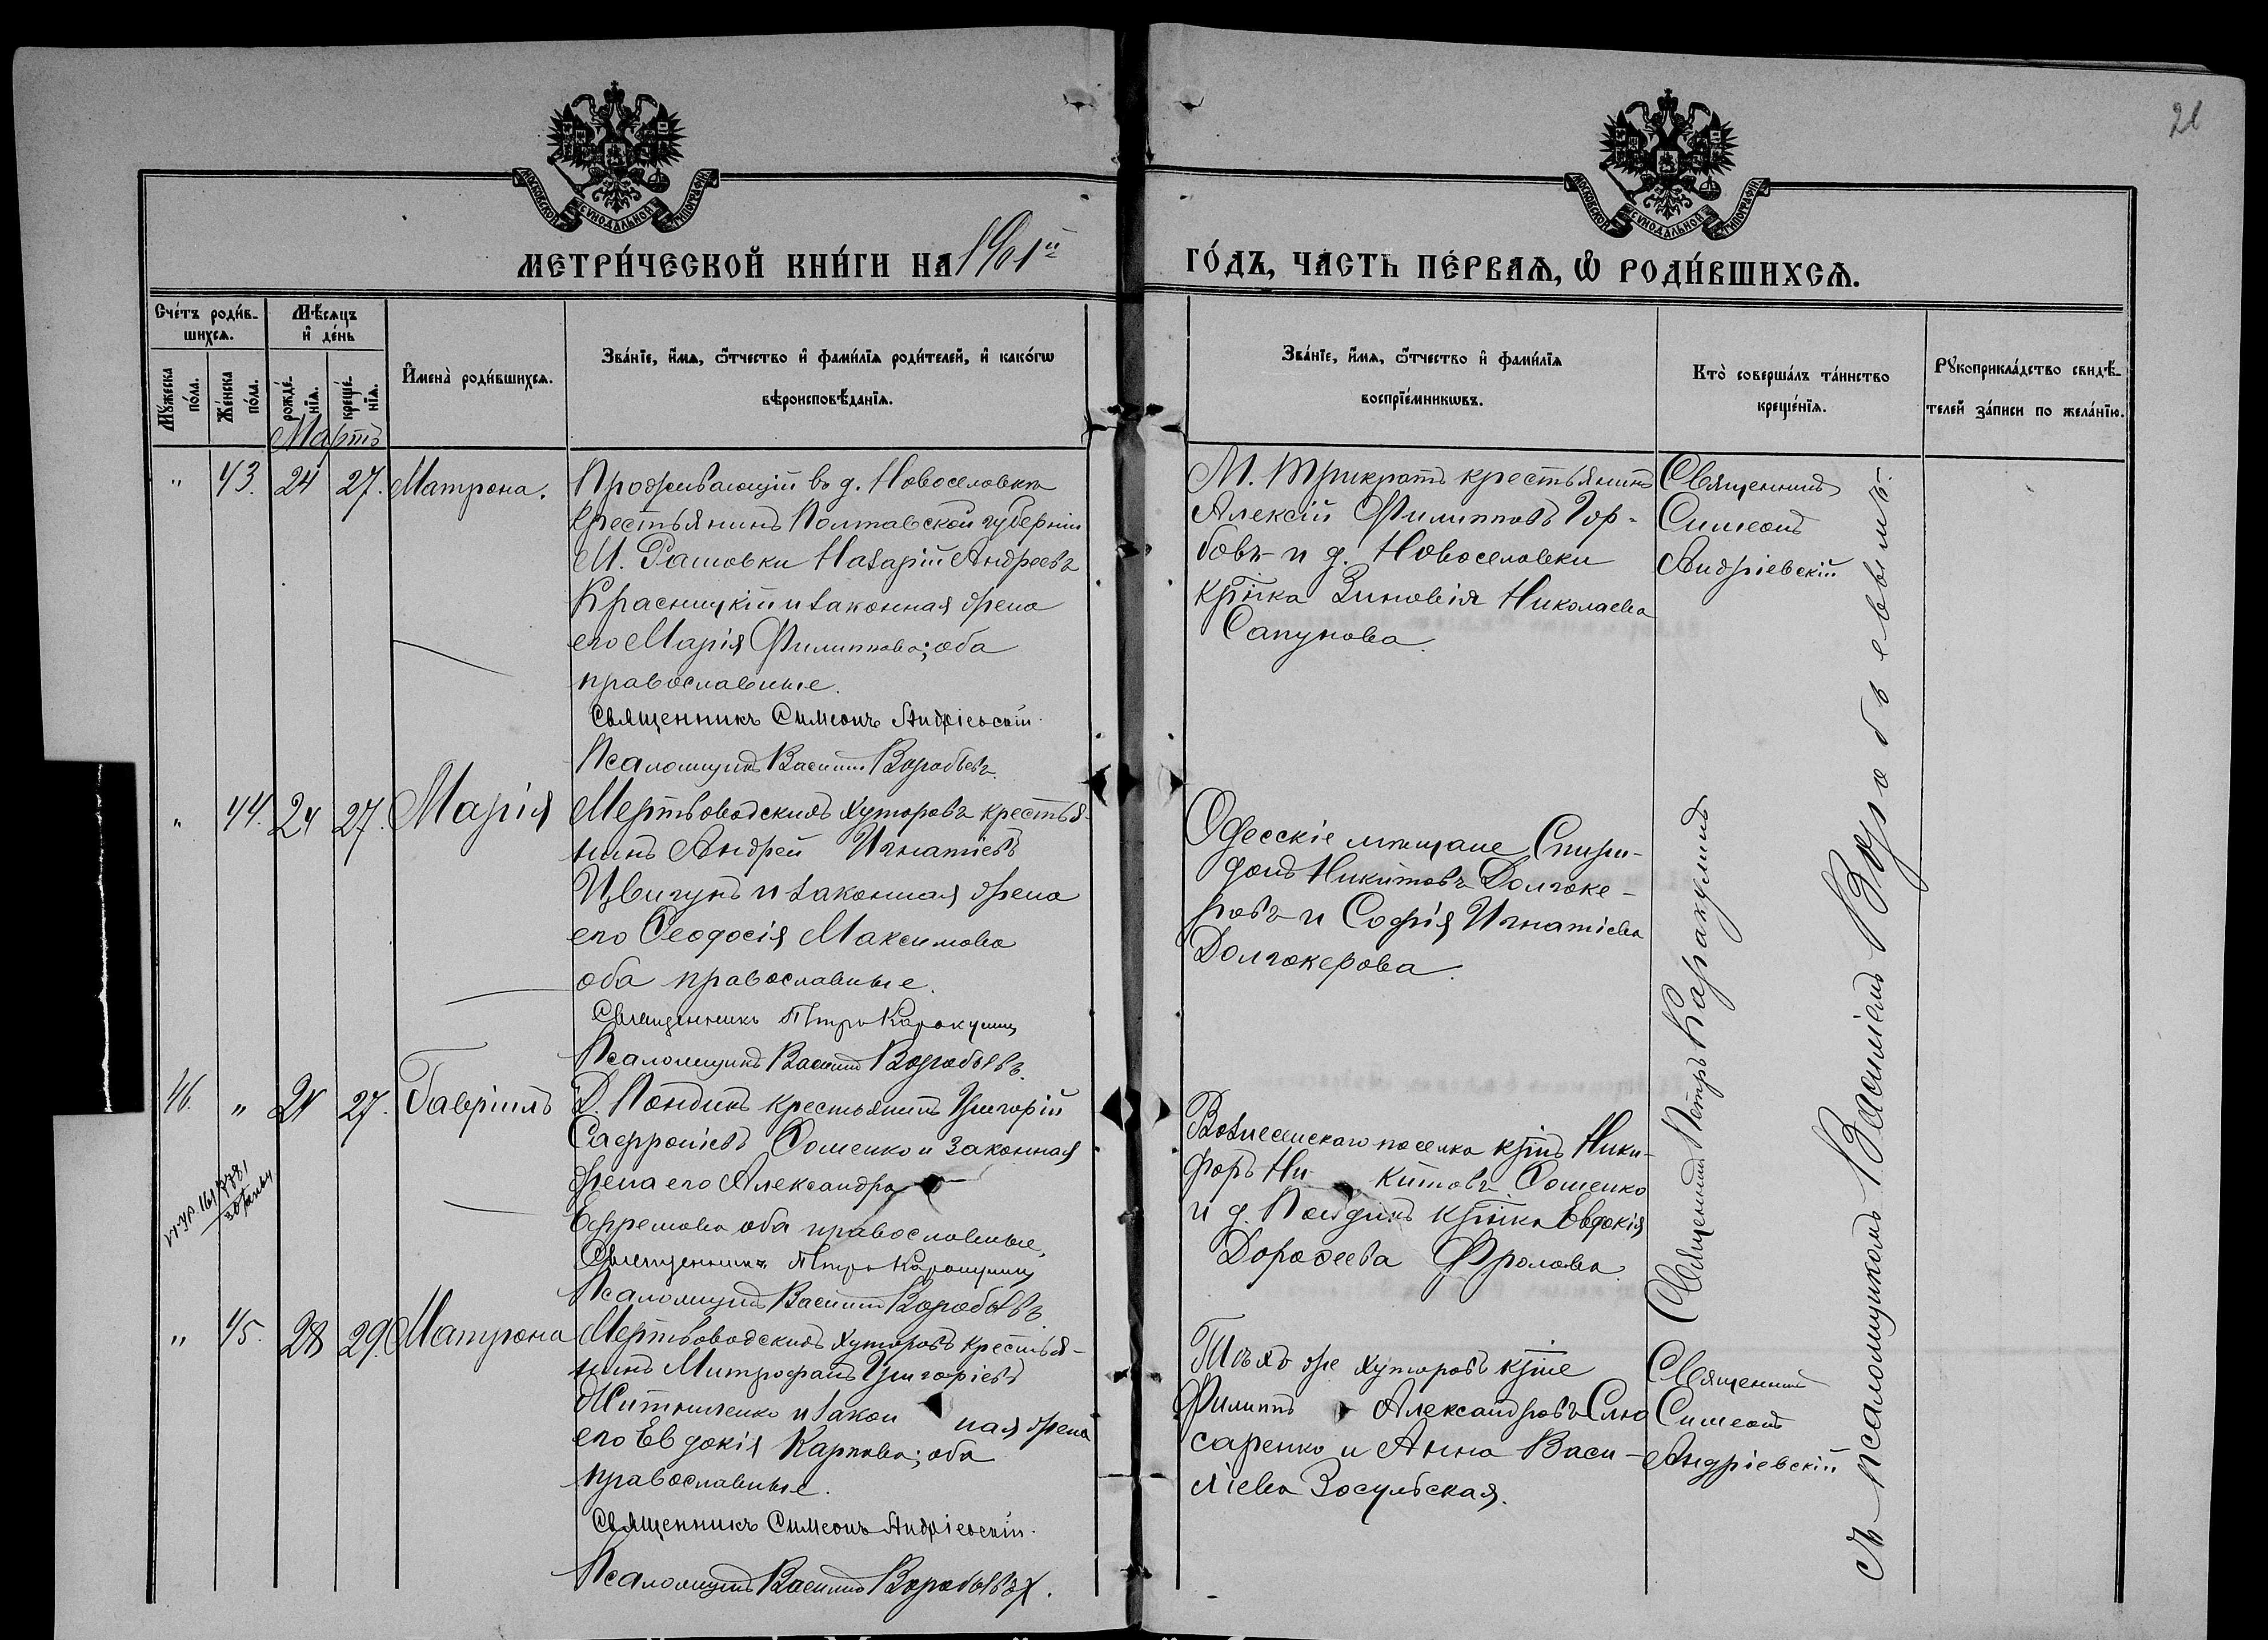 21
МОСКОВСКОЙ СУНОДАЛЬНОЙ ТИПОГРАФІИ
МОСКОВСКОЙ СУНОДАЛЬНОЙ ТИПОГРАФІИ
МЕТРИ́ЧЕСКОЙ КНИ́ГИ НА 1901й
ГО́ДЪ, ЧА́СТЬ ПЕ́РВАѦ, Ѡ҆ РОДИ́ВШИХСѦ.
Сче́тъ роди́в-
шихсѧ.
Мꙋ́жеска по́ла.
Же́нска по́ла.
Мѣ́сѧцъ
и҆ де́нь
рожде́-
нїѧ.
креще́-
нїѧ.
И҆мена̀ роди́вшихсѧ.
Зва́нїе, и҆́мѧ, ѻ҆́тчество и҆ фами́лїѧ роди́телей, и҆ како́гѡ
вѣроисповѣ́данїѧ.
Зва́нїе, и҆́мѧ, ѻ҆́тчество и҆ фами́лїѧ
воспрїе́мникѡвъ.
Кто̀ соверша́лъ та́инство
креще́нїѧ.
Рꙋкоприкла́дство свидѣ́-
телей за́писи по жела́нїю.
Мартъ
" 43. 24 27. Матрона.
Проживающій въ д. Новоселовкѣ
крестьянинъ Полтавской губерніи
М. Рашовки Назарій Андреевъ
Красницкій и законная жена
его Марія Филиппова; оба
православные.
Священникъ Симеонъ Андріевскій.
Псаломщикъ Василій Воробьевъ.
М. Трикратъ крестьянинъ
Алексій Филипповъ Гор-
бовъ и д. Новоселовки
кр͠нка Зиновія Николаева
Сапунова.
Священникъ
Симеонъ
Андріевскій
" 44. 24 27. Марія
Мертвоводскихъ хуторовъ крестья-
нинъ Андрей Игнатіевъ
Цвигунъ и законная жена
его Ѳеодосія Максимова
оба православные.
Священникъ Петръ Каракулинъ
Псаломщикъ Василій Воробьевъ.
Одесскіе мѣщане Спири-
донъ Никитовъ Долгоке-
ровъ и Софія Игнатіева
Долгокерова.
46. " 24 27. Гавріилъ
Д. Пондикъ крестьянинъ Григорій
Сафроніевъ Ѳоменко и законная
жена его Александра
Ефремова оба православные,
Священникъ Петръ Каракулинъ
Псаломщикъ Василій Воробьевъ.
Вознесенскаго поселка кр͠нъ Ники-
форъ Ни- китовъ Ѳоменко
и д. Пондикъ кр͠нка Евдокія
Дороѳеева Фролова.
Священникъ Петръ Каракулинъ
" 45. 28 29. Матрона
Мертвоводскихъ хуторовъ крестья-
нинъ Митрофанъ Григоріевъ
Житниченко и закон ная жена
его Евдокія Карпова; оба
православные.
Священникъ Симеонъ Андріевскій.
Псаломщикъ Василій Воробьевъ.
Тѣхъ же хуторовъ кр͠не
Филиппъ Александровъ Слю
саренко и Анна Васи-
ліева Зосульская.
Священникъ
Симеонъ
Андріевскій
съ псаломщикомъ Василіемъ Воробьевымъ.